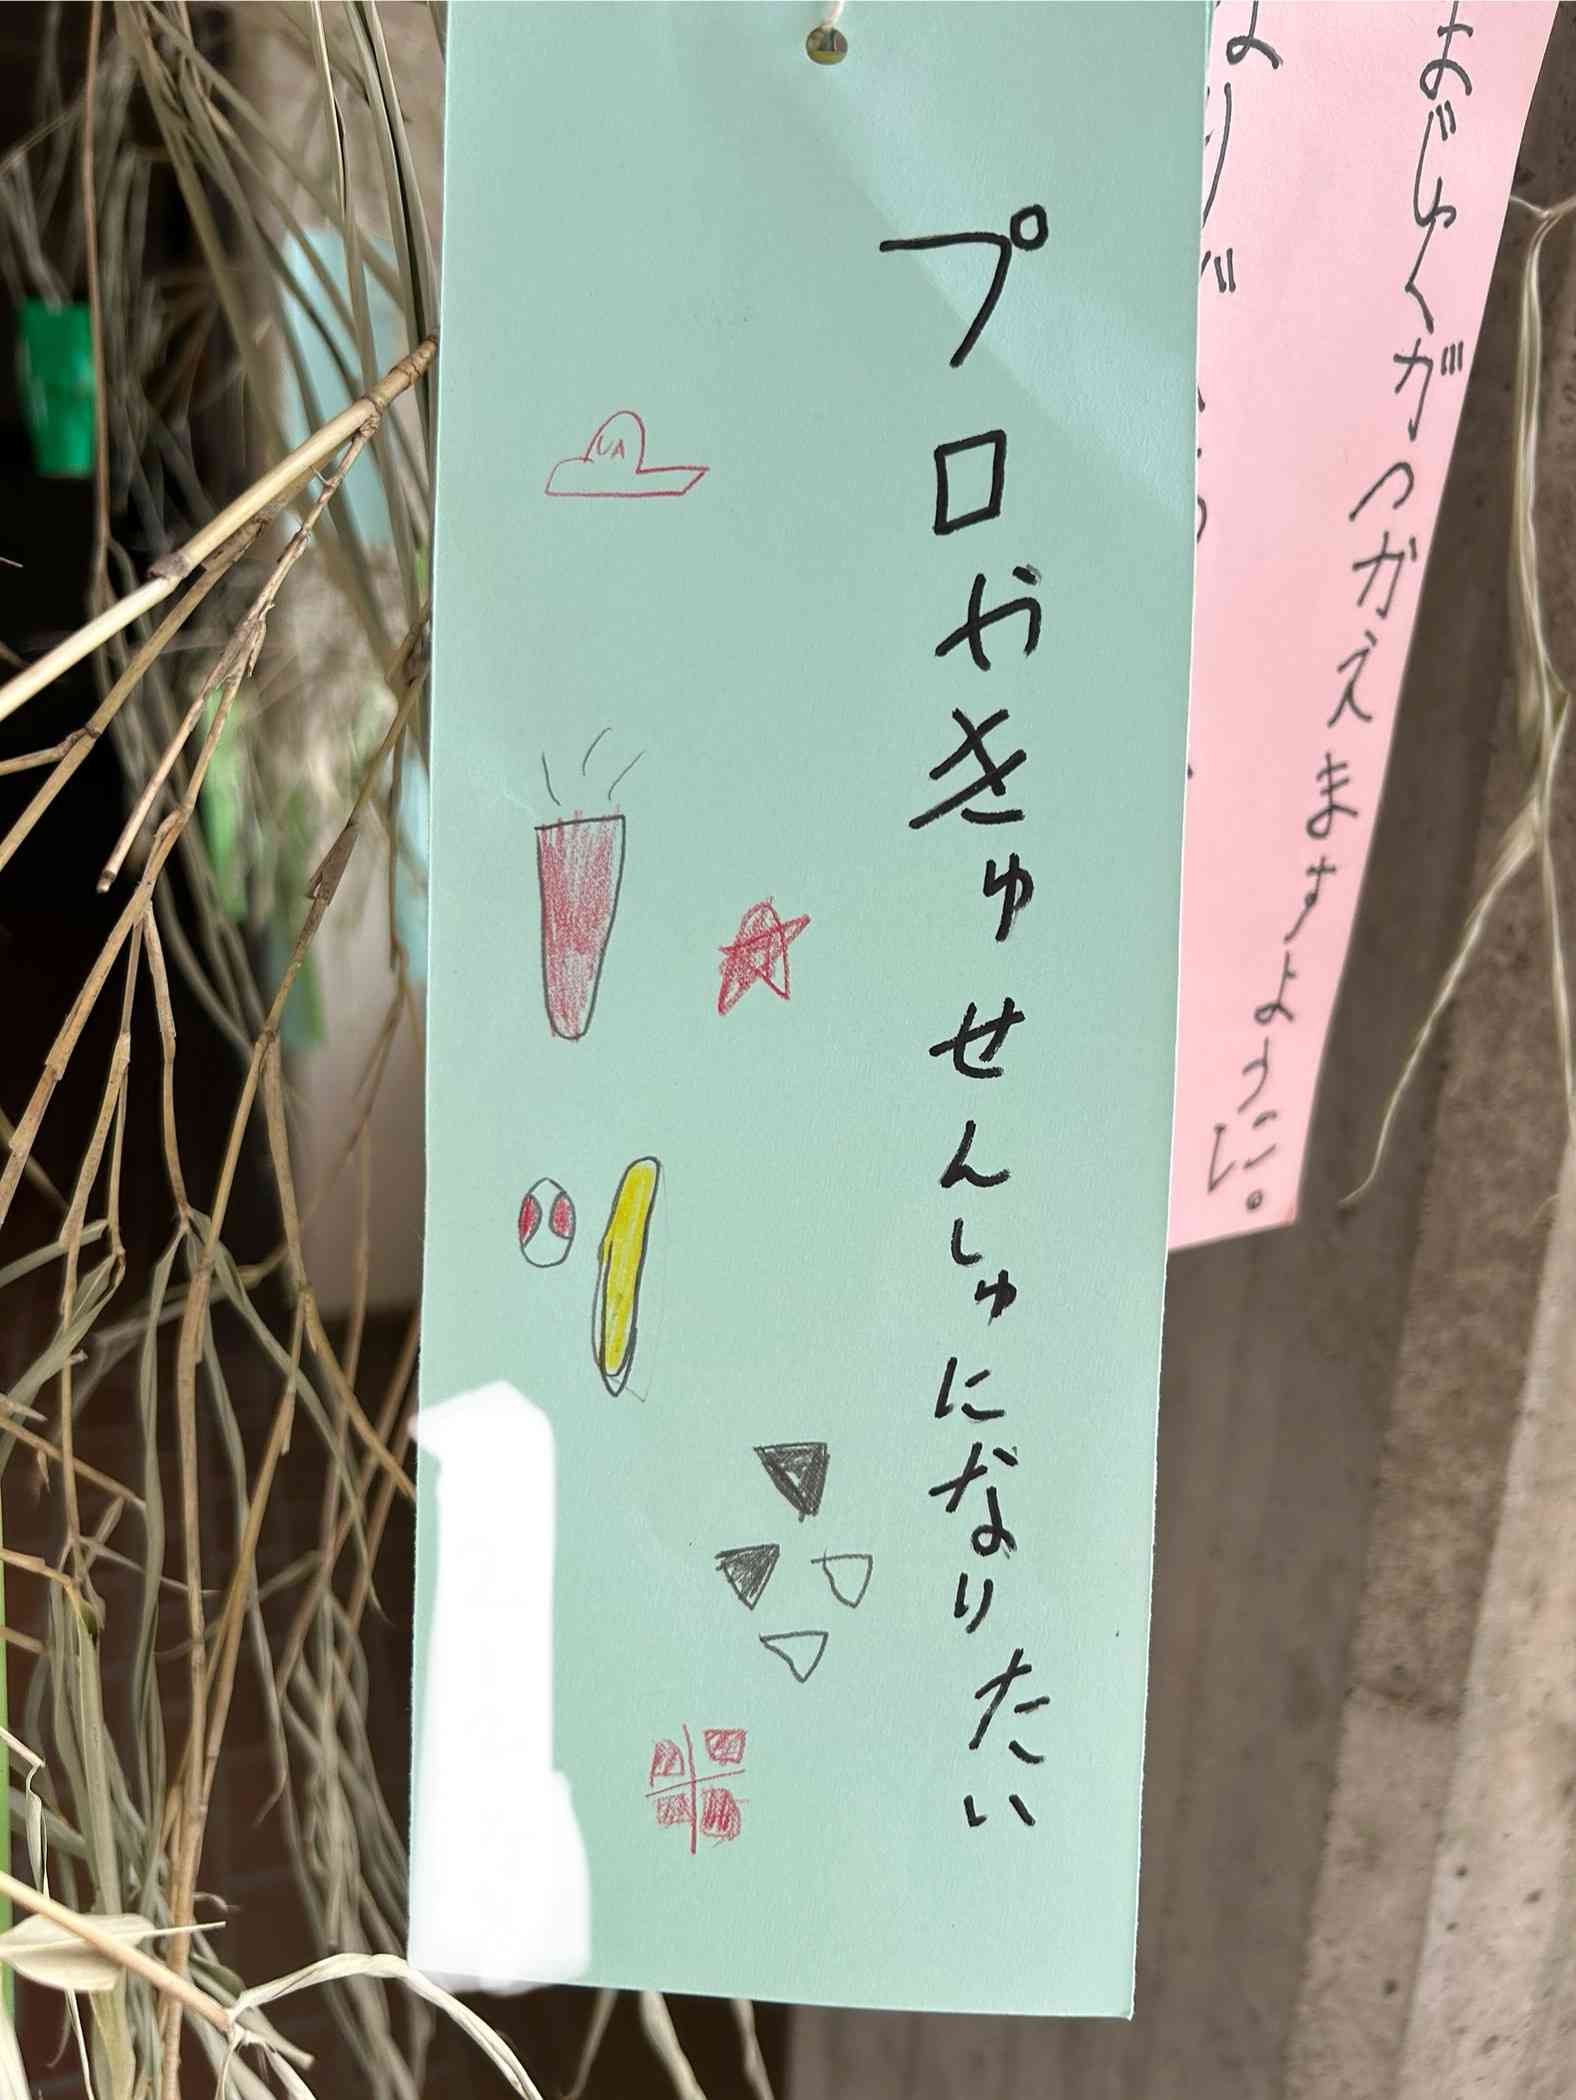 まじゅくがつかえますように。
プロやきゅせんしゅになりたい
UA